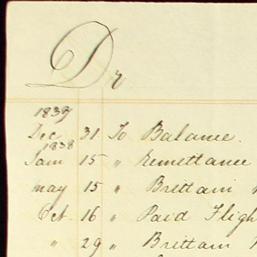 Dr
1839
Dec 31 To Balance.
1838
Jan 15 " Remettance
May 15 " Brettain
Oct 16 " Paid Fligh
" 29 " Brettain